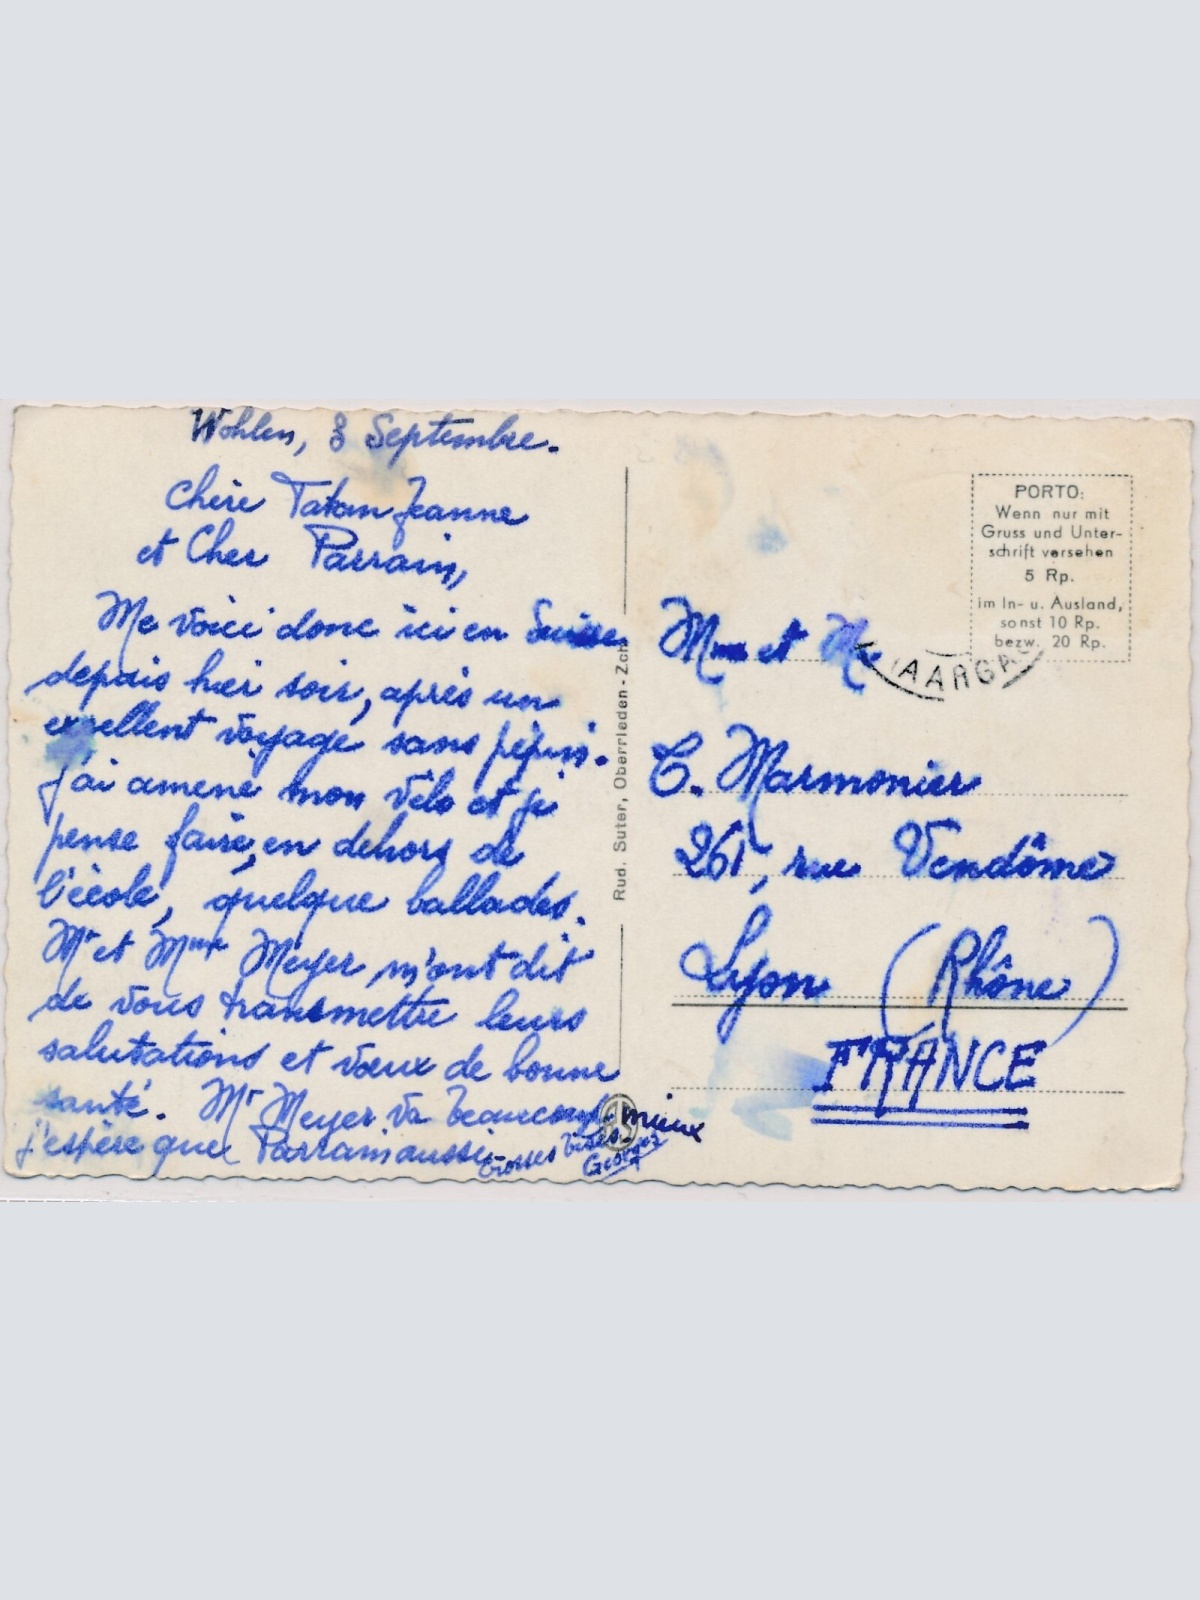 Wohlen, 8 Septembre.
Chère Tatan Jeanne
et Cher Parrain,
Me voici donc ici en Suisse
depuis hier soir, après un
excellent voyage sans pépin.
J'ai amené mon vélo et je
pense faire, en dehors de
l'école, quelque ballades.
Mr et Mme Meyer m'ont dit
de vous transmettre leurs
salutations et vœux de bonne
santé. Mr Meyer va beaucoup mieux
j'espère que Parrain aussi.
Grosses bises.
Georges
Rud. Suter, Oberrieden - Zch.
PORTO:
Wenn nur mit
Gruss und Unter-
schrift versehen
5 Rp.
im In- u. Ausland,
sonst 10 Rp.
bezw. 20 Rp.
(AARGAU)
Mme et Mr
C. Marmonier
261, rue Vendôme
Lyon (Rhône)
FRANCE